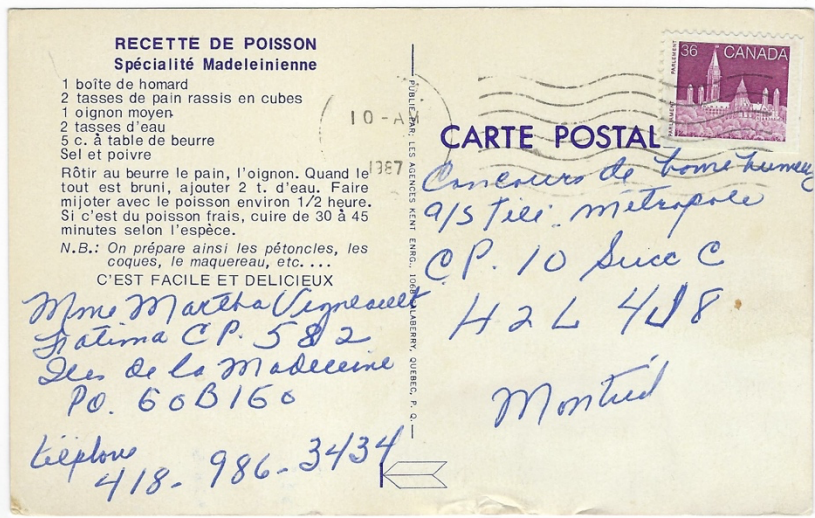 RECETTE DE POISSON
Spécialité Madeleinienne
1 boîte de homard
2 tasses de pain rassis en cubes
1 oignon moyen
2 tasses d'eau
5 c. à table de beurre
Sel et poivre
Rôtir au beurre le pain, l'oignon. Quand le
tout est bruni, ajouter 2 t. d'eau. Faire
mijoter avec le poisson environ 1/2 heure.
Si c'est du poisson frais, cuire de 30 à 45
minutes selon l'espèce.
N.B.: On prépare ainsi les pétoncles, les
coques, le maquereau, etc. . . .
C'EST FACILE ET DELICIEUX
Mme Martha Vigneault
Fatima C.P. 582
Iles de la Madeleine
PO. G0B1G0
téléphone
418- 986-3434
PUBLIÉ PAR: LES AGENCES KENT ENRG., 1068, QUEBEC, P. Q.
10-AM
1987
PARLEMENT
PARLIAMENT
36 CANADA
CARTE POSTAL
Concours de bonne humeur
a/s Télé. Métropole
C.P. 10 Succ C
H2L 4J8
Montréal